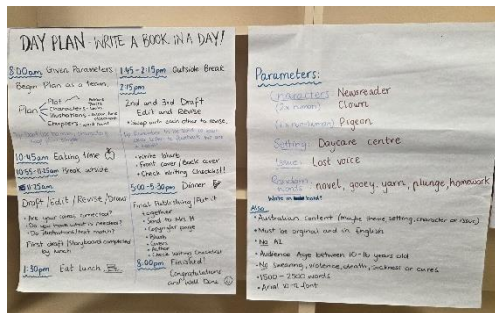 DAY PLAN - WRITE A BOOK IN A DAY!
8:00am Given Parameters
Begin Plan as a team.
Plan
Plot
Characters
Illustrations
Chapters
10:45am Eating time
10:55-11:25am Break outside
11:25am
Draft/Edit/Revise/Draw
First draft/Storyboard completed
by lunch
1:30pm Eat lunch
1:45-2:15pm Outside Break
2:15pm
2nd and 3rd Draft
Edit and Revise
with each other to revise.
Write blurb
Front cover/Back cover
Check editing checklist!
5:00-5:30pm Dinner
Final Publishing/Put it
together
Send to Mrs H
Copyright page
Blurb
Covers
Author
8:00pm Finished!
Congratulations
and Well Done
Parameters:
Characters Newsreader
(2x human) Clown
(1x nonhuman) Pigeon
Setting Daycare centre
Issue Lost voice
Random novel, gooey, yarn, plunge, homework
words
Also
• Australian Content (maybe theme, setting, character or issue)
• Must be orginal and in English
• No AI
• Audience Age between 10-16 years old
• No swearing, violence, death, sickness or cures
• 1500-2500 words
• Arial font